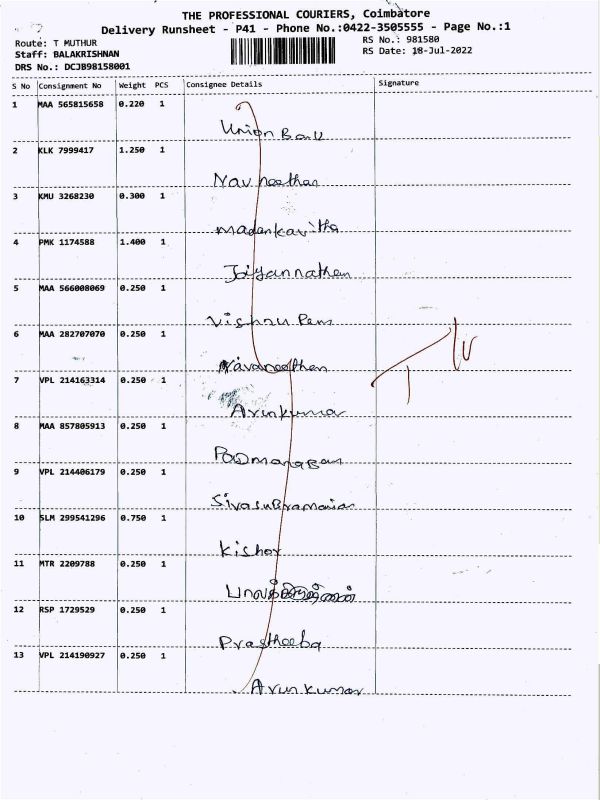 THE PROFESSIONAL COURIERS, Coimbatore
Delivery Runsheet - P41 - Phone No.:0422-3505555 - Page No.:1
Route: T MUTHUR
RS No.: 981580
Staff: BALAKRISHNAN
RS Date: 18-Jul-2022
DRS No.: DCJB98158001
S No Consignment No Weight PCS Consignee Details Signature
1 MAA 565815658 0.220 1
Union Bank
2 KLK 7999417 1.250 1
Navneethan
3 KMU 3268230 0.300 1
Madankavitha
4 PMK 1174588 1.400 1
5 MAA 566008069 0.250 1
Vishnu Ram
6 MAA 282707070 0.250 1
Navaneethan
7 VPL 214163314 0.250 1
Arunkumar
8 MAA 857805913 0.250 1
Padmanaban
9 VPL 214406179 0.250 1
Sivasubramanian
10 SLM 299541296 0.750 1
Kishor
11 MTR 2209788 0.250 1
12 RSP 1729529 0.250 1
Prastheeba
13 VPL 214190927 0.250 1
Arunkumar